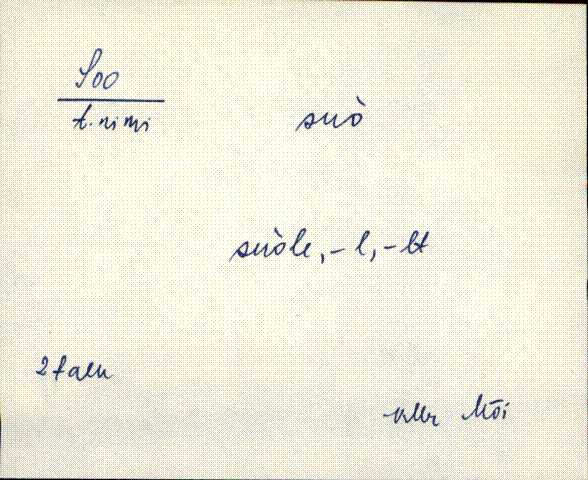 Soo
t. nimi
suò
suòle, -l, -lt
2 talu
Kõi